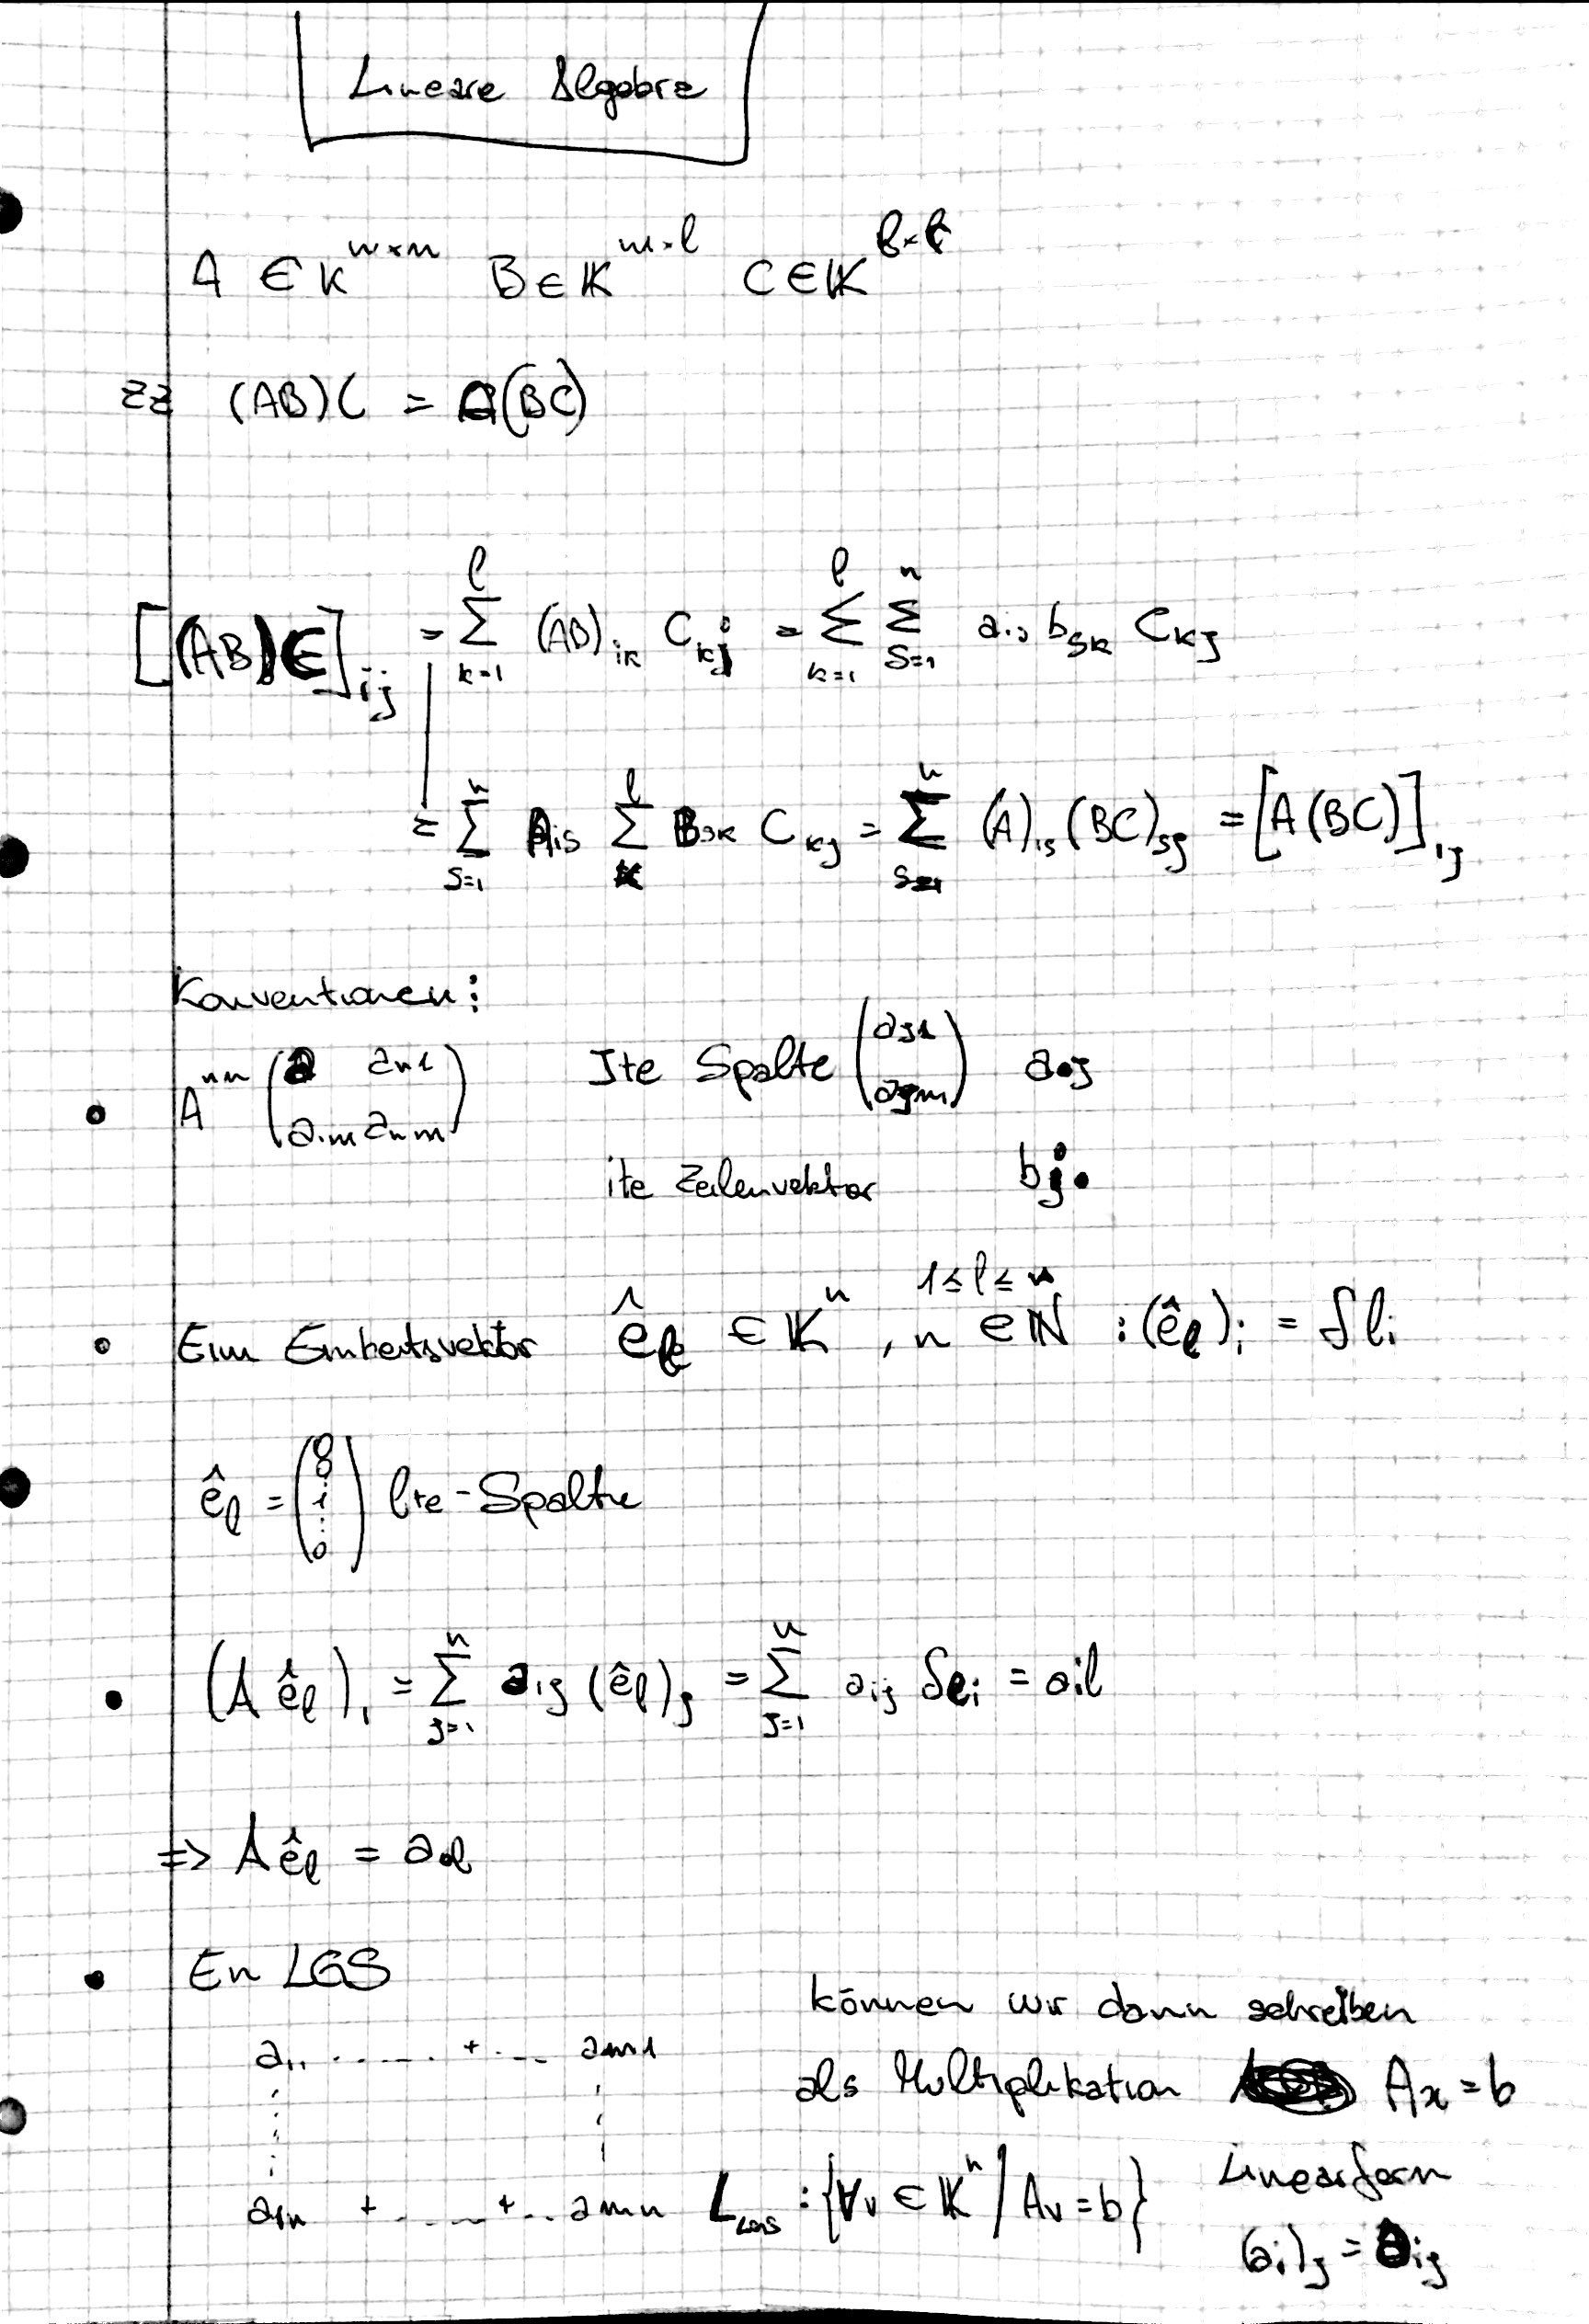 Lineare Algebra
A ∈ K^{m×n} B ∈ 𝕂^{m×l} C ∈ 𝕂
zz (AB)C = A(BC)
[(AB)C]_{ij} = \sum_{k=1}^{l} (AB)_{ik} C_{kj} = \sum_{k=1}^{l} \sum_{s=1}^{n} a_{is} b_{sk} C_{kj}
= \sum_{s=1}^{n} A_{is} \sum_{k}^{l} B_{sk} C_{kj} = \sum_{s=1}^{n} (A)_{is} (BC)_{sj} = [A(BC)]_{ij}
Konventionen:
• A (a a_{n1} Jte Spalte (a_{j1} a_{•j}
a_{1m} a_{nm}) a_{jm})
ite Zeilenvektor b_{j•}
• Ein Einheitsvektor ê_l ∈ 𝕂^n, n ∈ ℕ 1≤l≤n : (ê_l)_i = δ_{li}
ê_l = (0 0 : 1 : 0) lte-Spalte
• (A ê_l)_i = \sum_{j=1}^{n} a_{ij} (ê_l)_j = \sum_{j=1}^{n} a_{ij} δ_{li} = a_{il}
=> A ê_l = a_{•l}
• En LGS
können wir dann schreiben
a_{11} ...... + ... a_{m1}
als Multiplikation Ax = b
a_{1n} + ...... + .. a_{mn} L_{LGS} : {∀v ∈ 𝕂^n / Av = b} Linearform
(a_i)_j = a_{ij}